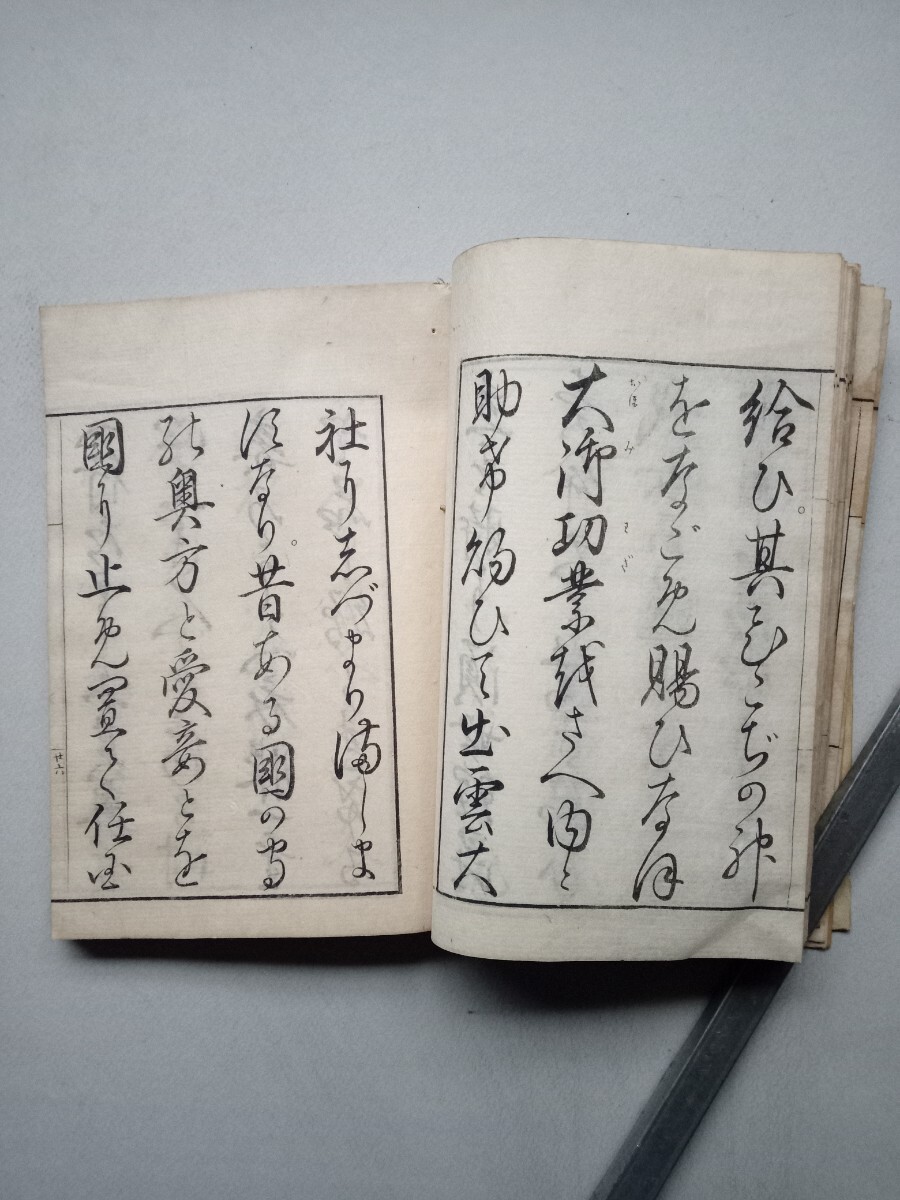 給ひ。其むこぢの神
をなごめ賜ひなほ
大御功業をさへ内と
おほみわざ
助け給ひて出雲大
社にしづまりましま
すなり。昔ある國の守
の奥方と愛妾とを
國に止め置て任
廿六